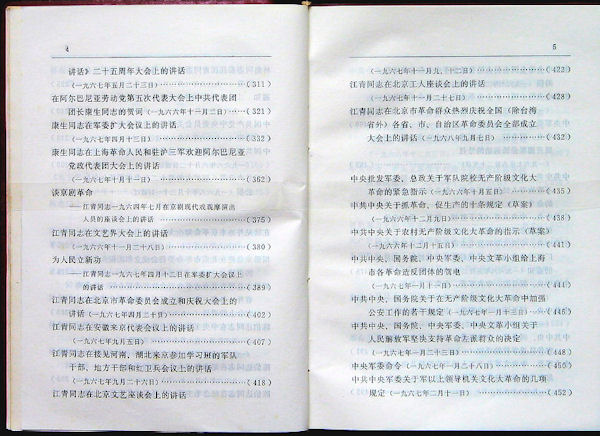 4
讲话》二十五周年大会上的讲话
(一九六七年五月二十三日)………(311)
在阿尔巴尼亚劳动党第五次代表大会上中共代表团
团长康生同志的贺词(一九六六年十一月二日)………(321)
康生同志在军委扩大会议上的讲话
(一九六七年四月十三日)………(332)
康生同志在上海革命人民和驻沪三军欢迎阿尔巴尼亚
党政代表团大会上的讲话
(一九六七年十月十一日)………(362)
谈京剧革命
——江青同志一九六四年七月在京剧现代戏观摩演出
人员的座谈会上的讲话………(375)
江青同志在文艺界大会上的讲话
(一九六六年十一月二十八日)………(380)
为人民立新功
——江青同志一九六七年四月十二日在军委扩大会议上
的讲话………(389)
江青同志在北京市革命委员会成立和庆祝大会上的
讲话(一九六七年四月二十日)………(402)
江青同志在安徽来京代表会议上的讲话
(一九六七年九月五日)………(407)
江青同志在接见河南、湖北来京参加学习班的军队
干部、地方干部和红卫兵会议上的讲话
(一九六七年九月二十六日)………(418)
江青同志在北京文艺座谈会上的讲话
5
(一九六七年十一月九、十二日)………(422)
江青同志在北京工人座谈会上的讲话
(一九六七年十一月二十七日)………(428)
江青同志在北京市革命群众热烈庆祝全国(除台湾
省外)各省、市、自治区革命委员会全部成立
大会上的讲话(一九六八年九月七日)………
中央批发军委、总政关于军队院校无产阶级文化大
革命的紧急指示(一九六六年十月五日)………(435)
中共中央关于抓革命、促生产的十条规定(草案)
(一九六六年十二月九日)………(438)
中共中央关于农村无产阶级文化大革命的指示(草案)
(一九六六年十二月十五日)………(441)
中共中央、国务院、中央军委、中央文革小组给上海
市各革命造反团体的贺电
(一九六七年一月十一日)………(444)
中共中央、国务院关于在无产阶级文化大革命中加强
公安工作的若干规定(一九六七年一月十三日)………(445)
中共中央、国务院、中央军委、中央文革小组关于
人民解放军坚决支持革命左派群众的决定
(一九六七年一月二十三日)………(448)
中央军委命令(一九六七年一月二十八日)………(450)
中共中央军委关于军以上领导机关文化大革命的几项
规定(一九六七年二月十一日)………(452)